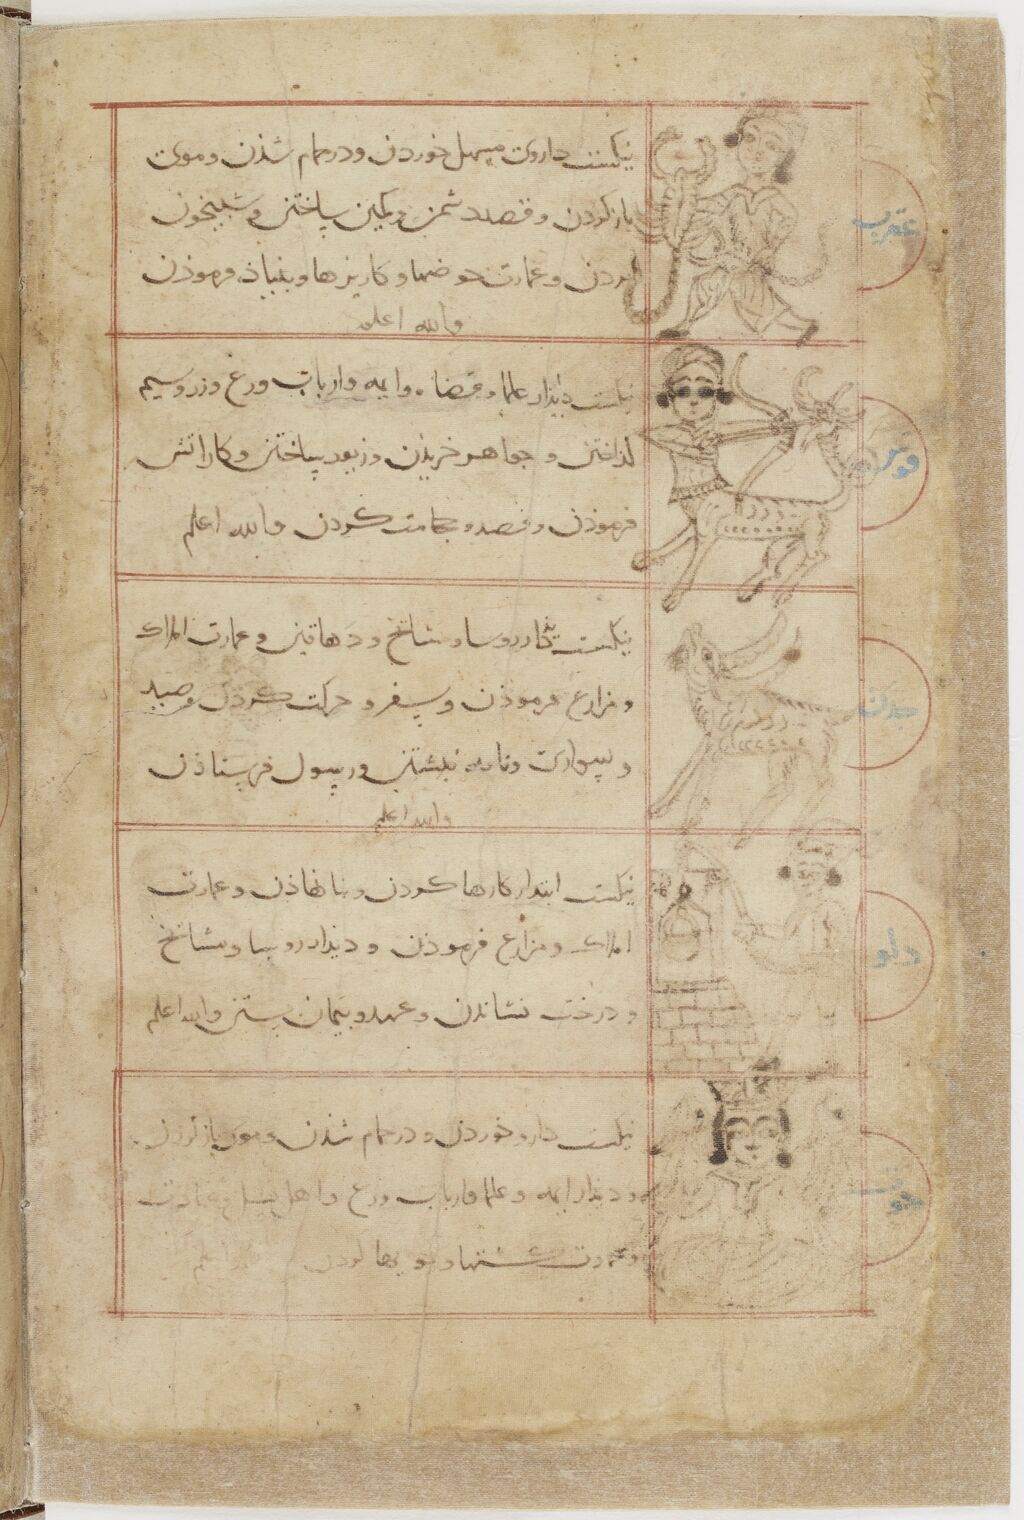 نیکست داروی مسهل خوردن و در حمام شذن و موی
باز کردن و قصد دشمن و کمین ساختن و شبیخون
بردن و عمارت حوضها و کاریزها و بنیاذ فرموذن
والله اعلم
عقرب
نیکست دیذار علما و قضاه و ایمه و ارباب ورع و زر و سیم
کداختن و جواهر خریذن و زیور ساختن و کار اتش
فرموذن و فصد و حجامت کردن والله اعلم
قوس
نیکست دیدار روسا و مشایخ و دهاقین و عمارت املاک
و مزارع فرموذن و سفر و حرکت کردن و صید
و سواری و نامه نبشتن و رسول فرستاذن
والله اعلم
جدی
نیکست ابتدا کارها کردن و بنا نهاذن و عمارت
املاک و مزارع فرموذن و دیذار روسا و مشایخ
و درخت نشاندن و عهد و پیمان بستن والله اعلم
دلو
نیکست دارو خوردن و در حمام شذن و موی باز کردن
و دیذار ایمه و علما و ارباب ورع و اهل
و عمارت کشتیها و جویها کردن اعلم
حوت